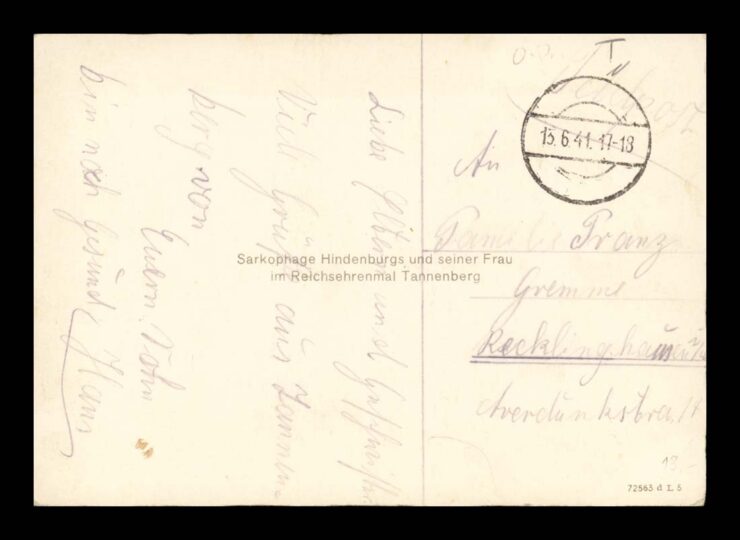 Liebe Eltern und
Viele Grüße aus Tannen-
berg von
Euern Sohn
bin noch gesund, Hans
Sarkophage Hindenburgs und seiner Frau
im Reichsehrenmal Tannenberg
Feldpost
13.6.41.17-18
An
Familie Franz
Gremme
Recklinghausen
18.-
72563 d I. 5